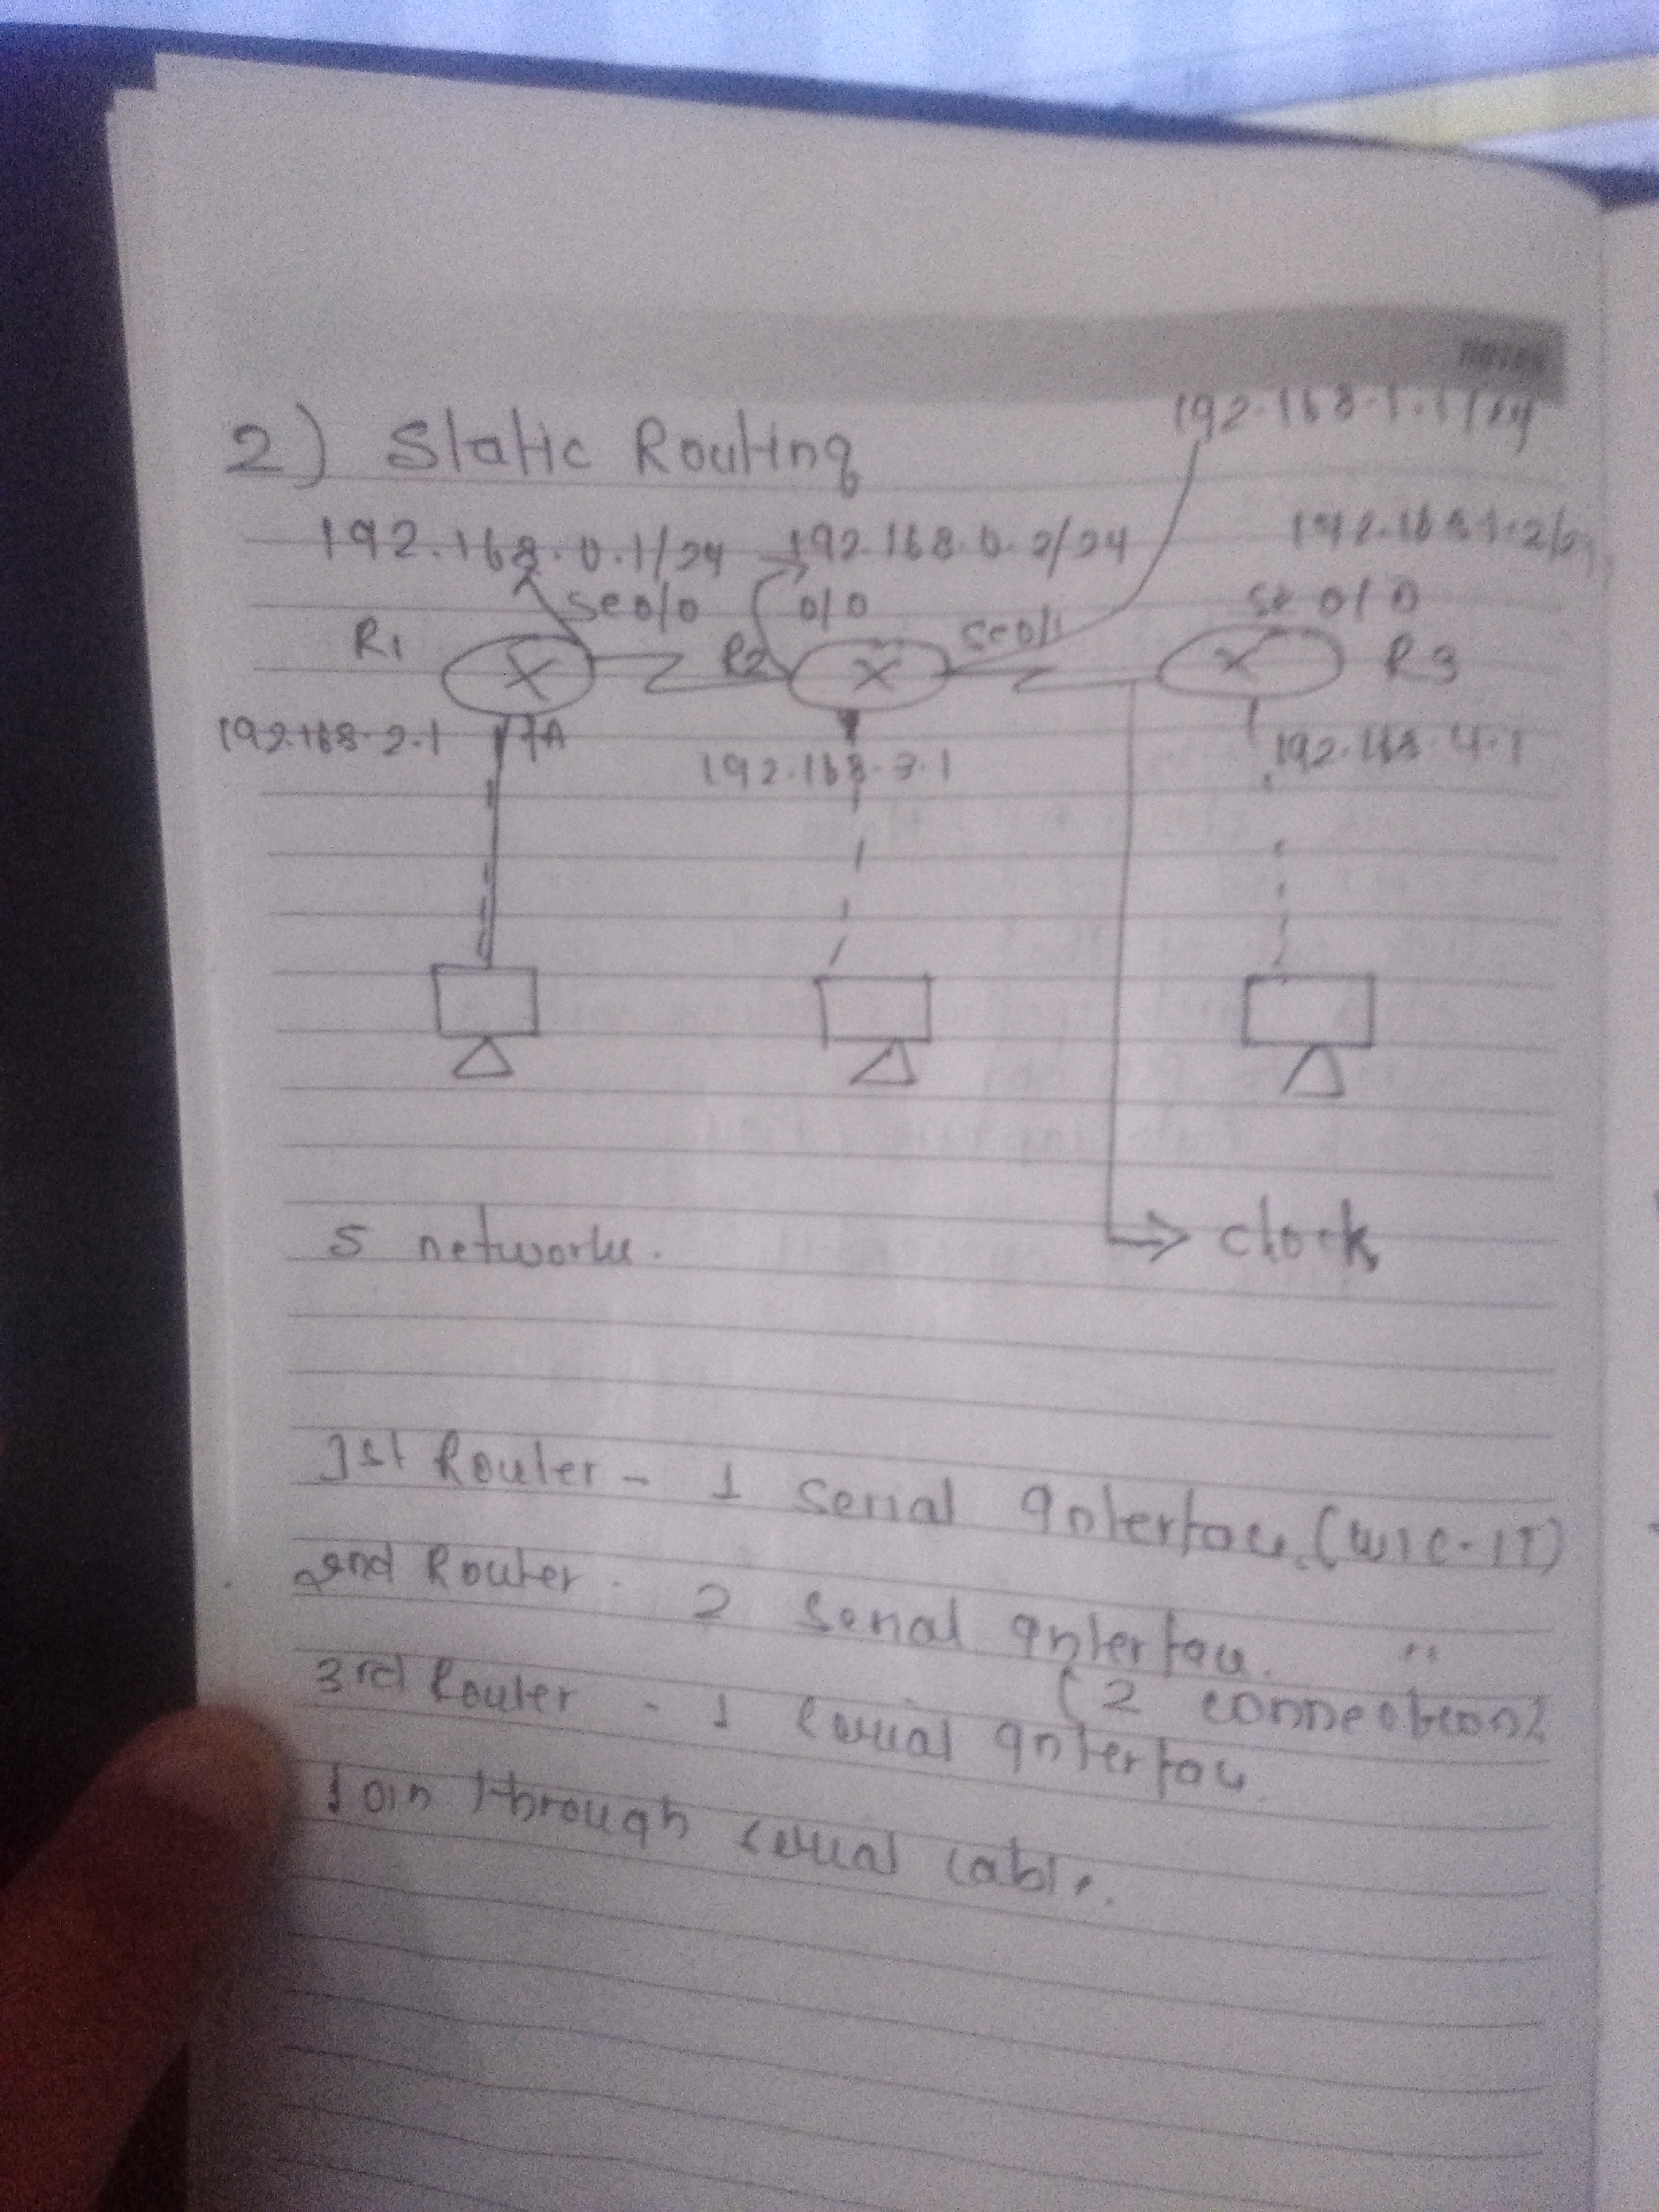 notes
192.168.1.1/24
2) Static Routing
192.168.0.1/24 192.168.0.2/24 192.168.1.2/24
se0/0 0/0 se0/1 se 0/0
R1 R2 R3
192.168.2.1 fA 192.168.3.1 192.168.4.1
5 networks.
clock
1st Router - 1 Serial Interface. (WIC-1T)
2nd Router. 2 Serial Interface. "
(2 connections
3rd Router - 1 Serial Interface
Join through serial cable.